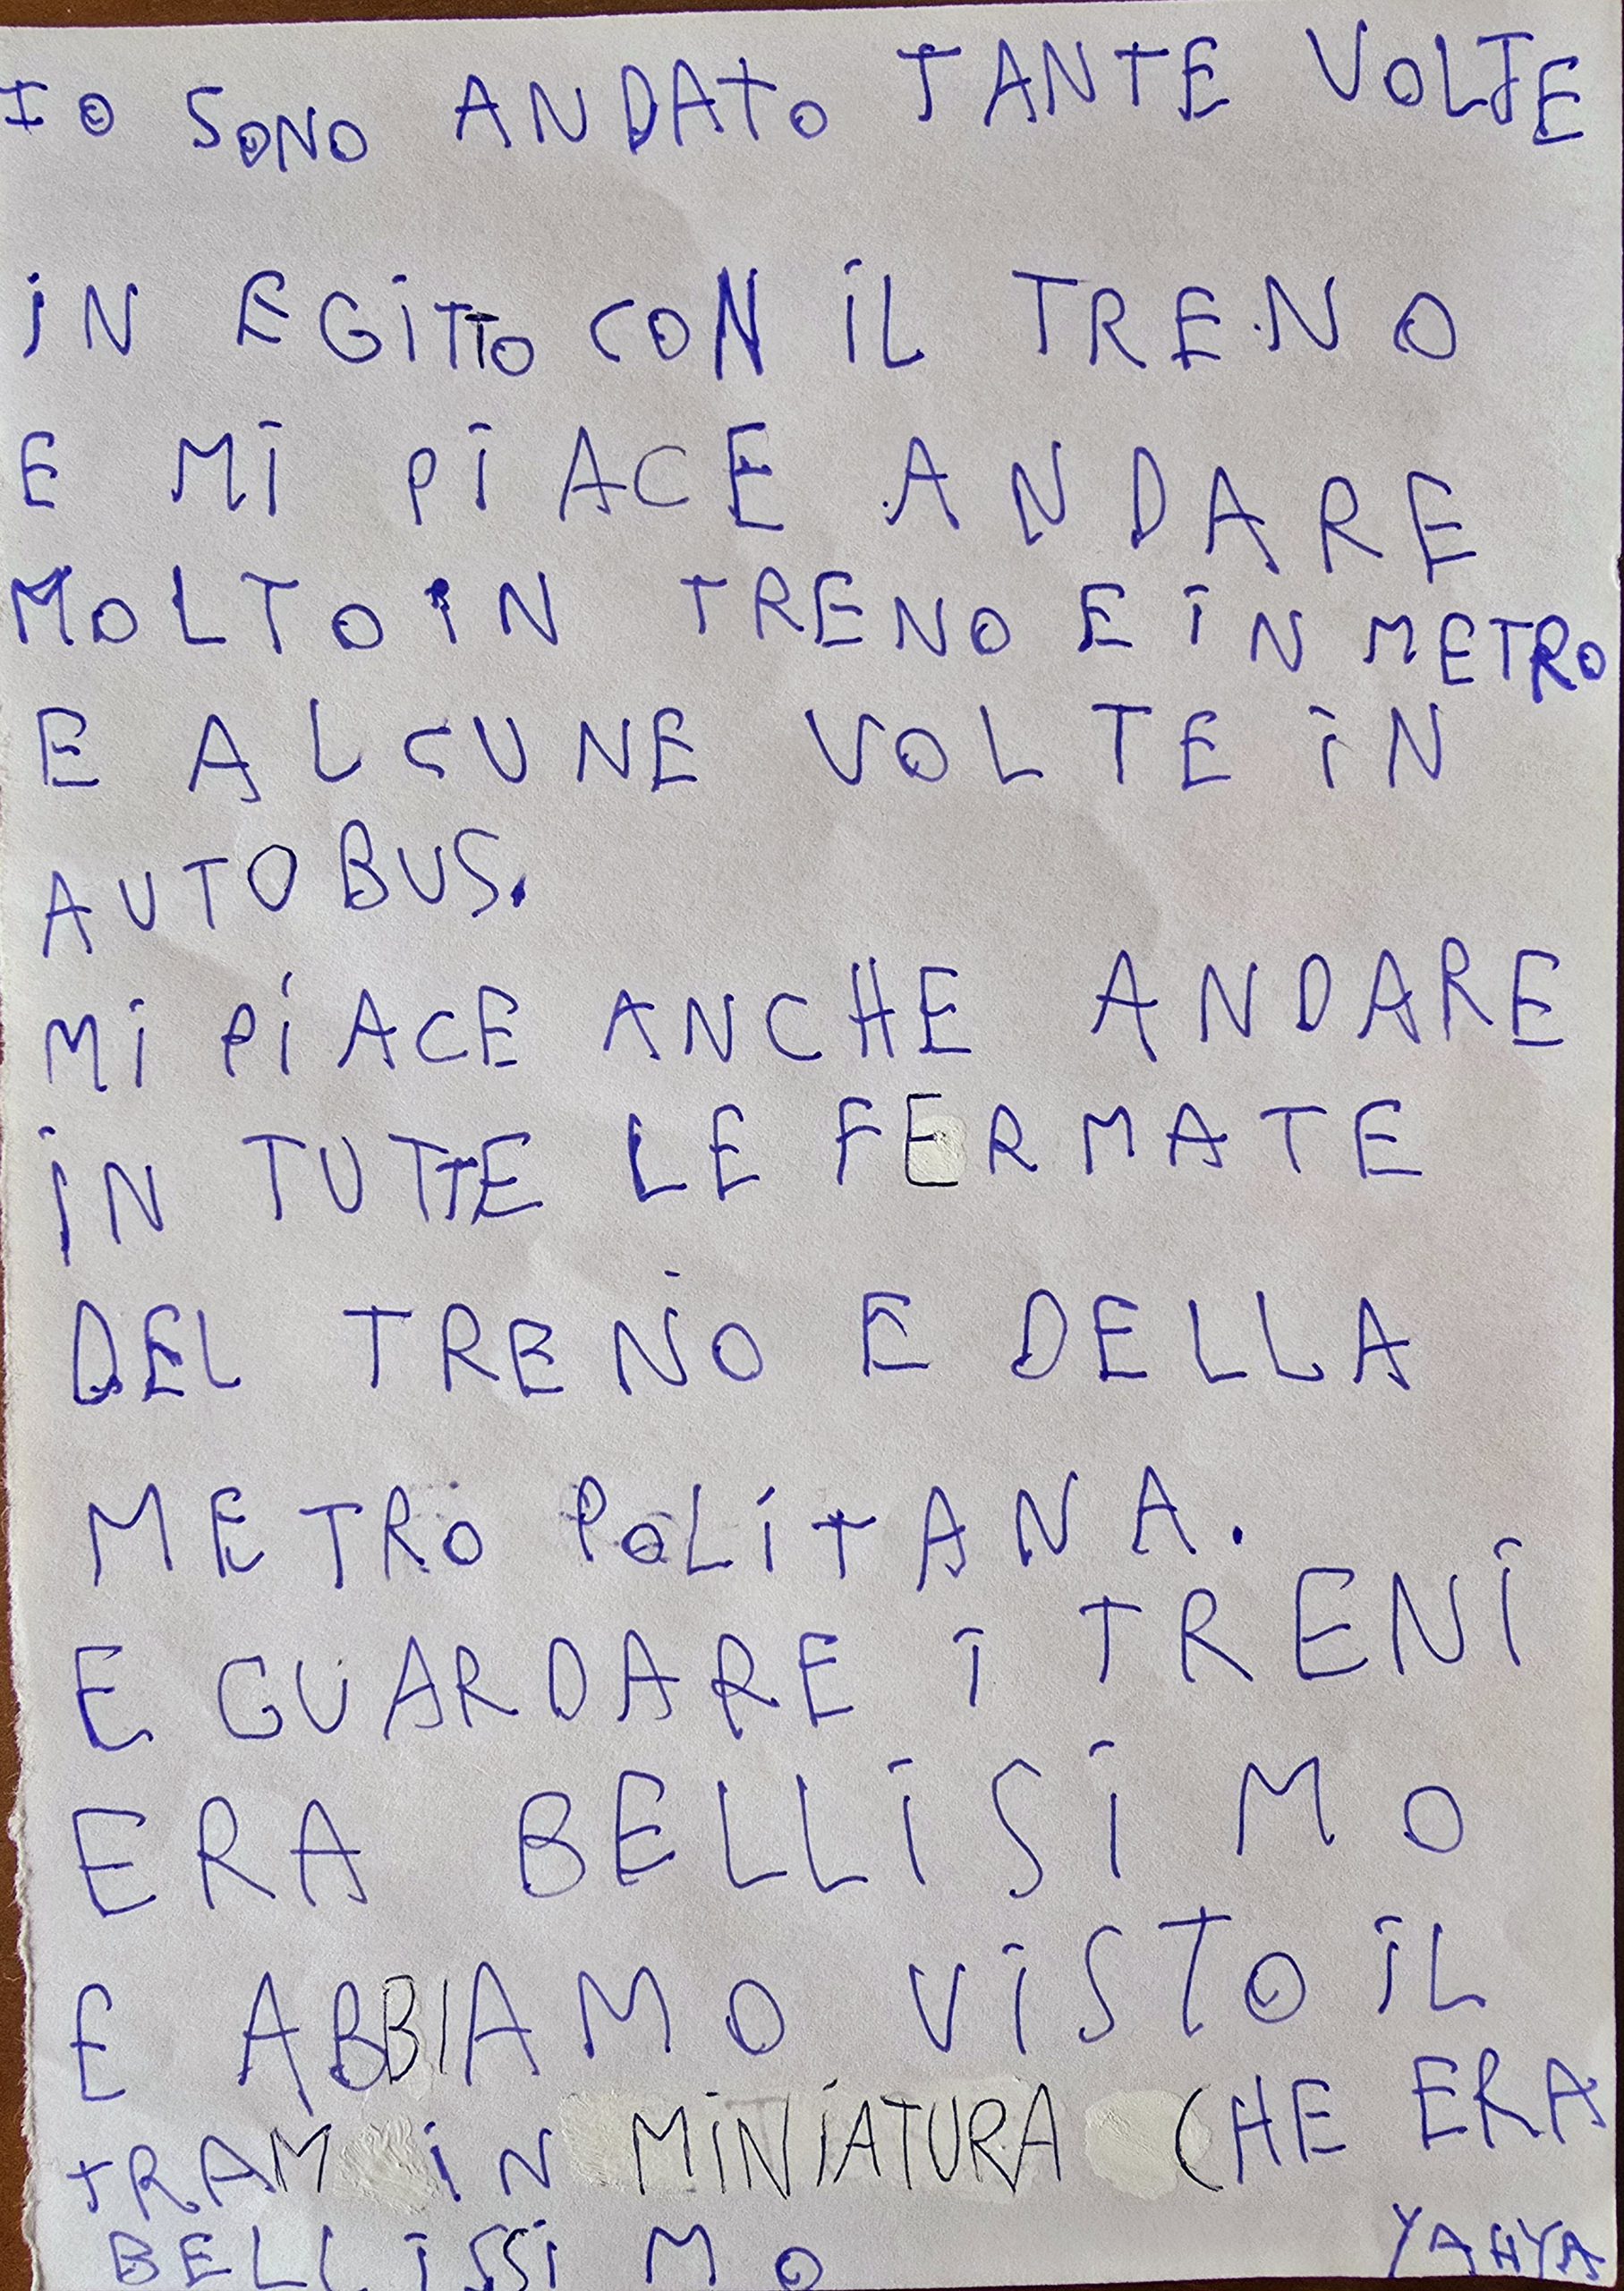 IO SONO ANDATO TANTE VOLTE
IN EGITTO CON IL TRENO
E MI PIACE ANDARE
MOLTO IN TRENO E IN METRO
E ALCUNE VOLTE IN
AUTOBUS.
MI PIACE ANCHE ANDARE
IN TUTTE LE FERMATE
DEL TRENO E DELLA
METROPOLITANA.
E GUARDARE I TRENI
ERA BELLISIMO
E ABBIAMO VISTO IL
TRAM IN MINIATURA CHE ERA
BELLISSIMO YAHYA